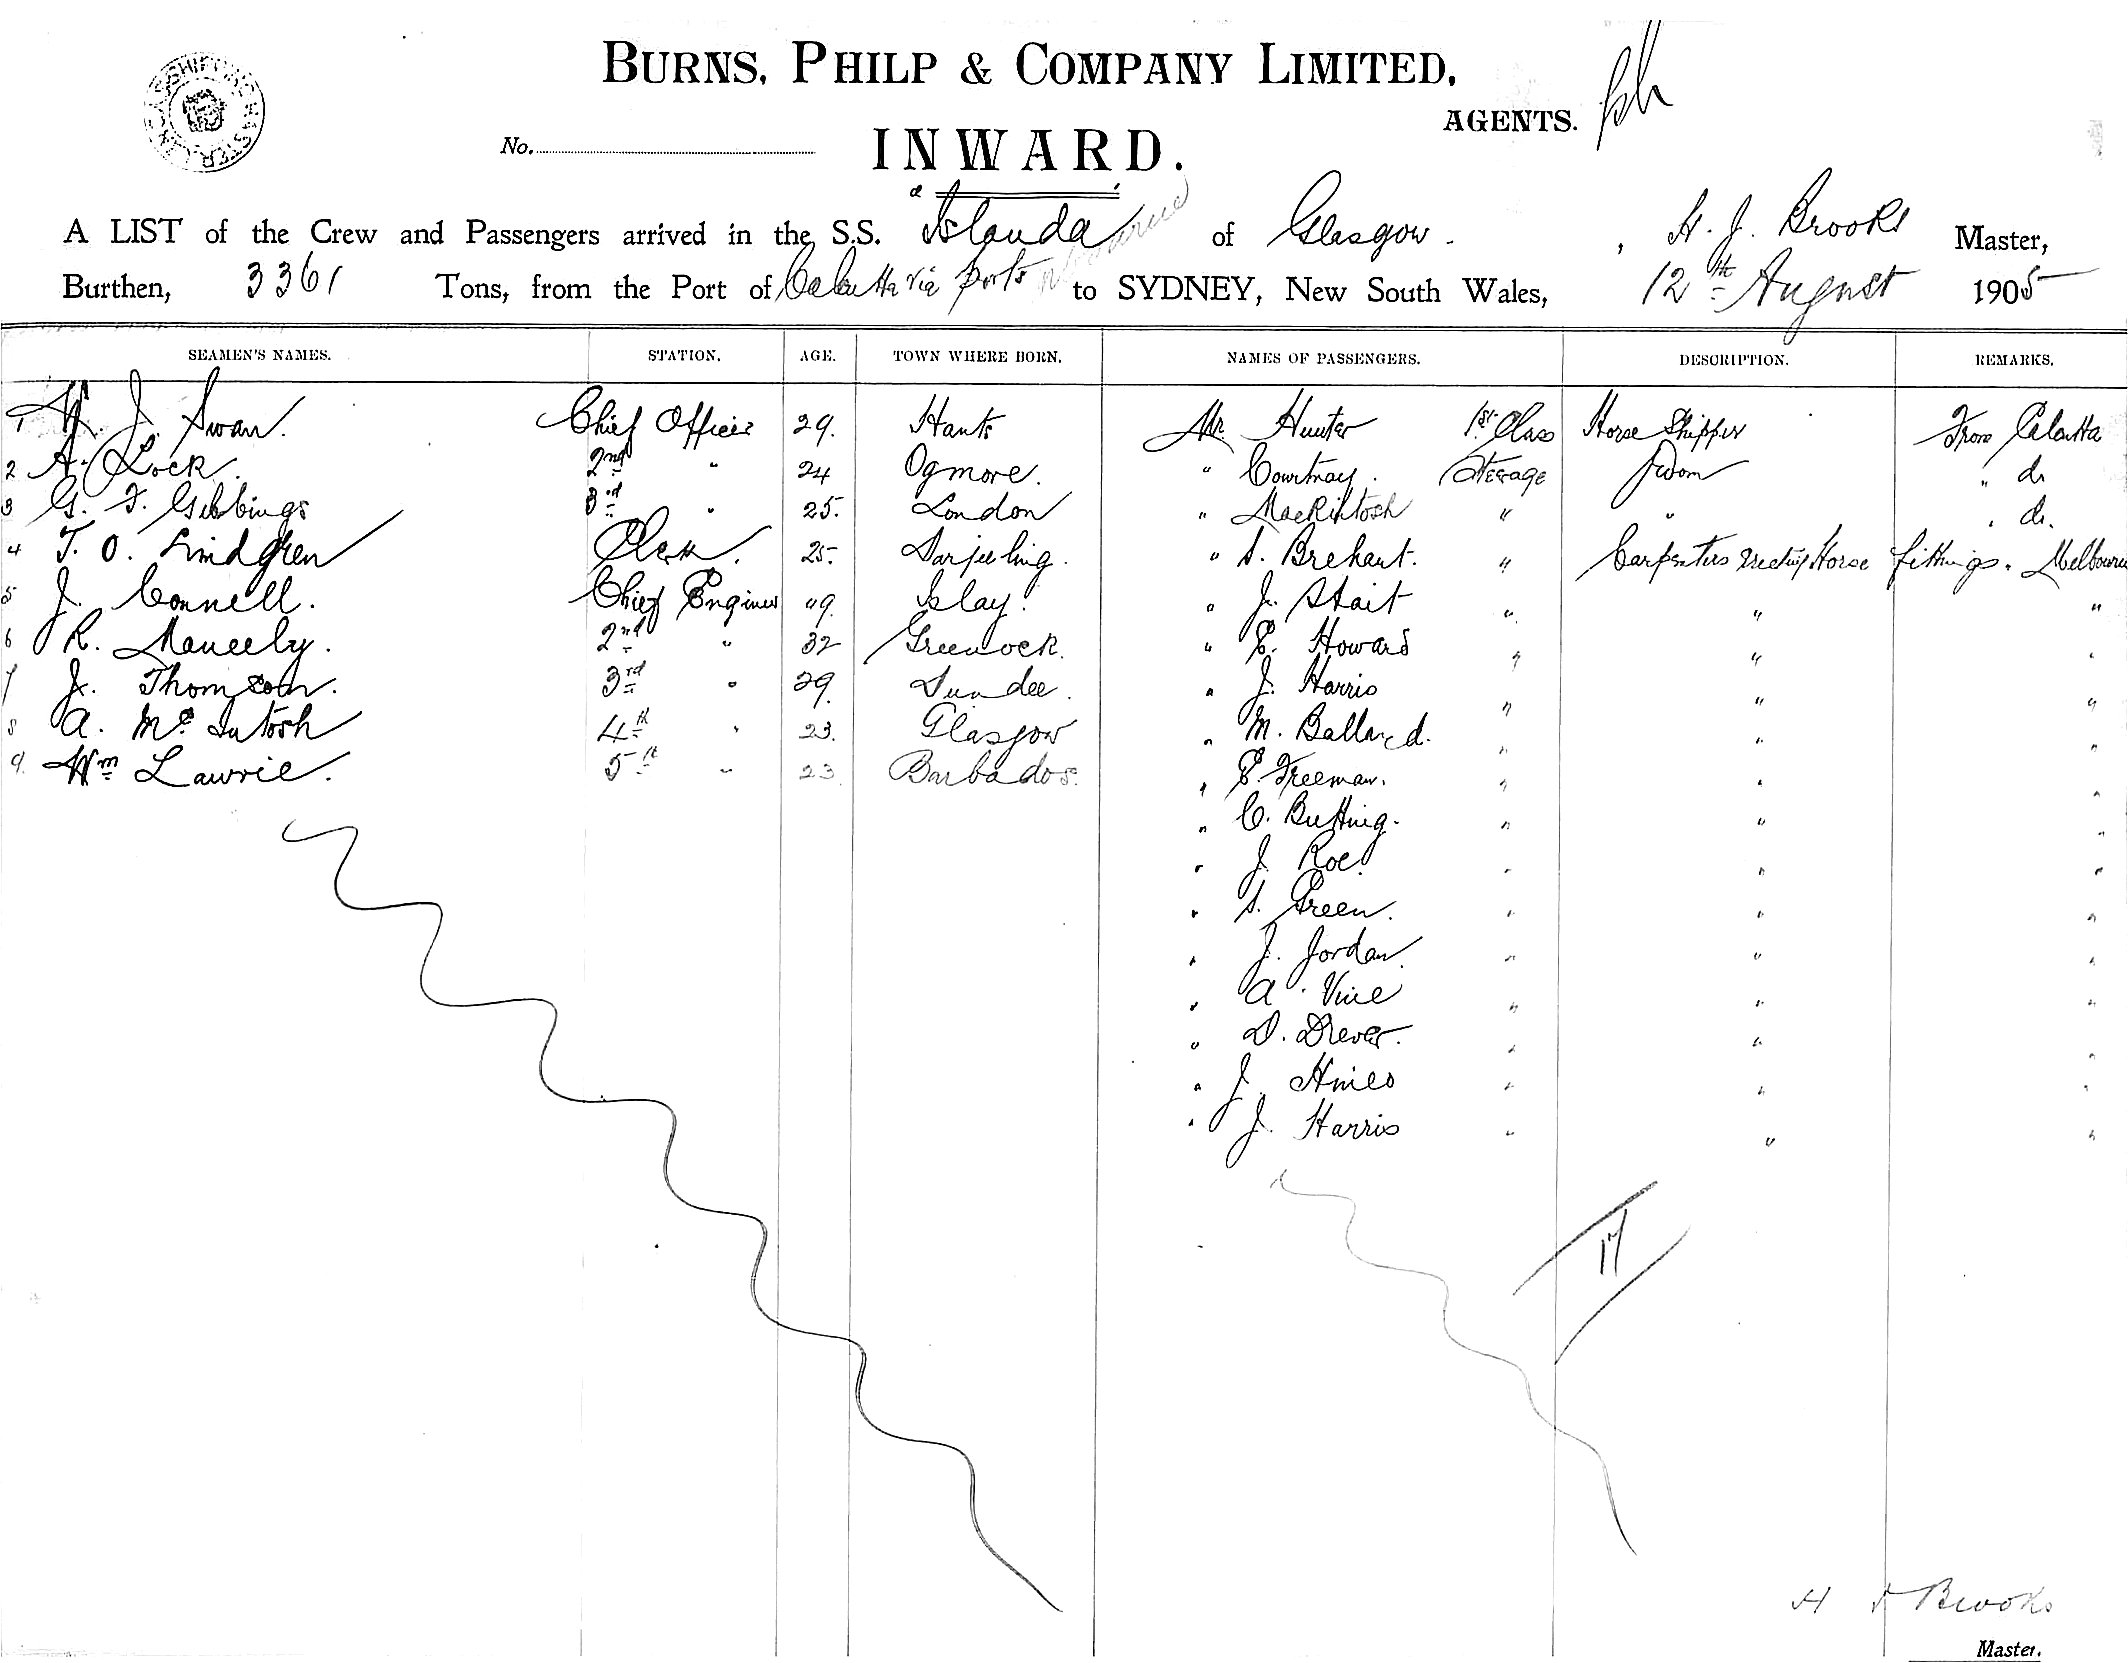 BURNS, PHILP & COMPANY LIMITED,
AGENTS.
No.
INWARD.
A LIST of the Crew and Passengers arrived in the S.S. Islanda of Glasgow. , H. J. Brooks Master,
Burthen, 3361 Tons, from the Port of Calcutta via ports to SYDNEY, New South Wales, 12th August 1905
SEAMEN'S NAMES. STATION. AGE. TOWN WHERE BORN. NAMES OF PASSENGERS. DESCRIPTION. REMARKS.
1 J. Swan. Chief Officer 29. Hants Mr. Hunter 1st Class Horse Shipper From Calcutta
2 A. Lock. 2nd " 24 Ogmore. " Courtnay. Steerage " do
3 G. F. Gibbings 3rd " 25. London " MacKintosh " " " do.
4 T. O. Lindgren Clerk. 25. Darjeeling. " S. Brehaut. " Carpenters erecting Horse fittings. Melbourne
5 J. Connell. Chief Engineer 49. Islay. " J. Stait " " "
6 R. Maneely. 2nd " 32 Greenock. " E. Howard " " "
7 J. Thomson. 3rd " 29. Dundee. " J. Harris " " "
8 A. McIntosh 4th " 23. Glasgow " M. Ballard. " " "
9. Wm Lawrie. 5th " 23. Barbados. " E. Freeman. " " "
" C. Butting. " " "
" J. Roe. " " "
" S. Green. " " "
" J. Jordan. " " "
" A. Vine " " "
" D. Drever. " " "
" J. Hines " " "
" J. Harris " " "
17
H J Brooks
Master.